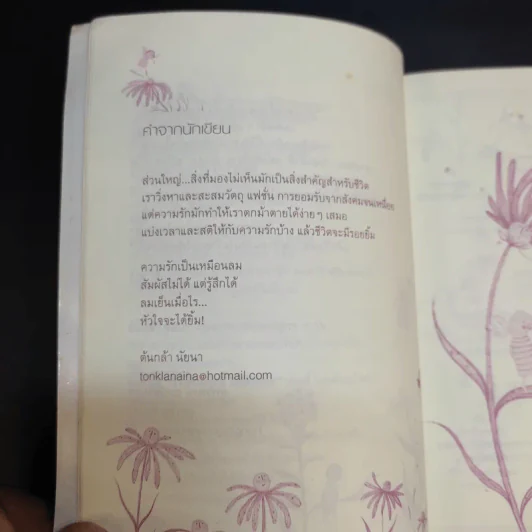 คำจากนักเขียน
ส่วนใหญ่...สิ่งที่มองไม่เห็นมักเป็นสิ่งสำคัญสำหรับชีวิต
เราวิ่งหาและสะสมวัตถุ แฟชั่น การยอมรับจากสังคมจนเหนื่อย
แต่ความรักมักทำให้เราตกม้าตายได้ง่ายๆ เสมอ
แบ่งเวลาและสติให้กับความรักบ้าง แล้วชีวิตจะมีรอยยิ้ม
ความรักเป็นเหมือนลม
สัมผัสไม่ได้ แต่รู้สึกได้
ลมเย็นเมื่อไร...
หัวใจจะได้ยิ้ม!
ต้นกล้า นัยนา
tonklanaina@hotmail.com